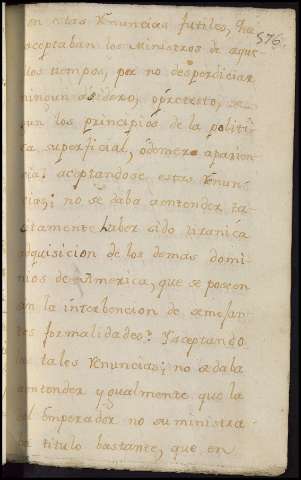 576.
en estas renuncias futiles, que
aceptaban los Ministros de aque
llos tiempos, por no desperdiciar
ningun dstdero, opretesto, se
gun los principios de la politi
ca superficial, odemera aparien
cia; aceptandose estas renun
cias; no se daba aentender ta
citamente haber sido tiranica
adquisicion de los demas domi
nios de America, que se poseen
sin la interbencion de semejan
tes formalidades? Yaceptando
las tales renuncias; no sedaba
aentender ygualmente que la
del Emperador no suministra
ba titulo bastante, que en